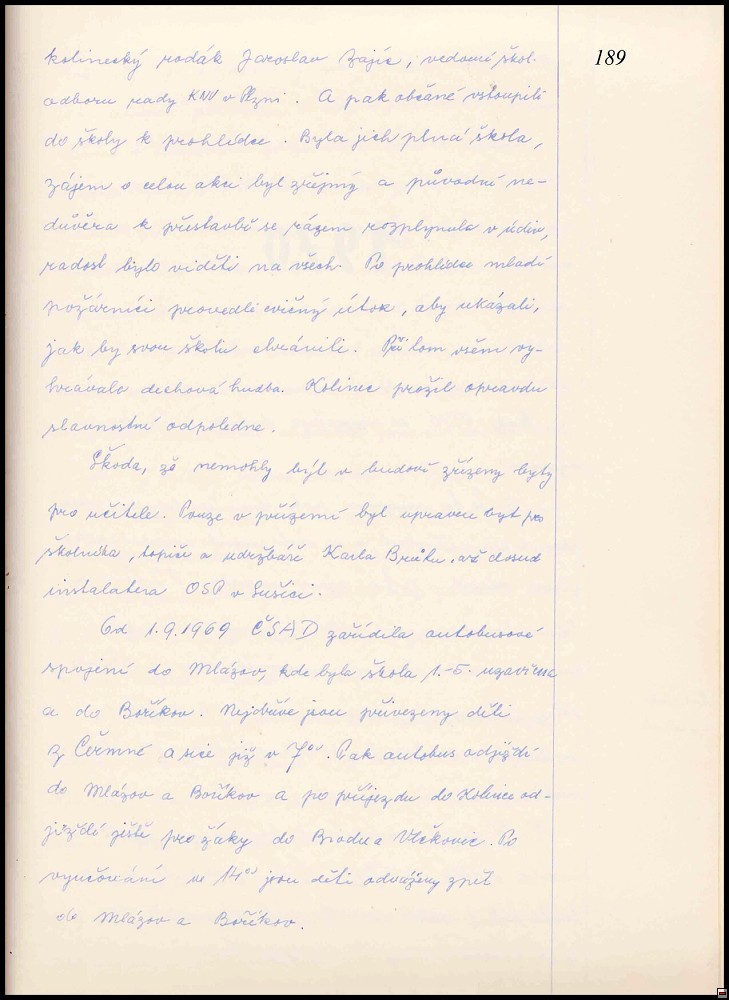 kolinecký rodák Jaroslav Zajíc, vedoucí škol.
189
odboru rady KNV v Plzni. A pak občané vstoupili
do školy k prohlídce. Byla jich plná škola,
zájem o celou akci byl zřejmý a původní ne-
důvěra k přestavbě se rázem rozplynula v údiv,
radost bylo viděti na všech. Po prohlídce mladí
požárníci provedli cvičný útok, aby ukázali,
jak by svou školu chránili. Při tom všem vy-
hrávala dechová hudba. Kolinec prožil opravdu
slavnostní odpoledne.
Škoda, že nemohly být v budově zřízeny byty
pro učitele. Pouze v přízemí byl upraven byt pro
školníka, topiče a údržbáře Karla , až dosud
instalatera OSP v Sušici.
Od 1.9.1969 ČSAD zařídila autobusové
spojení do Mlázov, kde byla škola 1.-5. uzavřena
a do Boříkov. Nejdříve jsou přivezeny děti
z Čermné a sice již v 7°°. Pak autobus odjíždí
do Mlázov a Boříkov a po příjezdu do Kolince od-
jíždí ještě pro žáky do Brodu a Vlčkovic. Po
vyučování ve 14°° jsou děti odváženy zpět
do Mlázov a Boříkov.